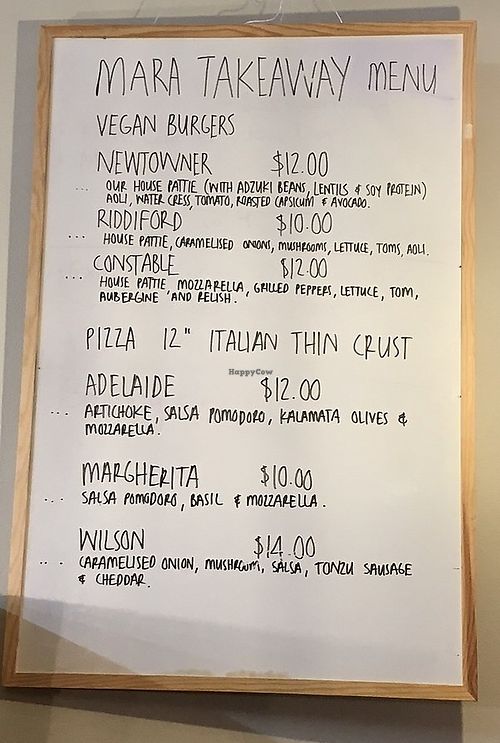 MARA TAKEAWAY MENU
VEGAN BURGERS
NEWTOWNER $12.00
... OUR HOUSE PATTIE (WITH ADZUKI BEANS, LENTILS & SOY PROTEIN)
AOLI, WATER CRESS, TOMATO, ROASTED CAPSICUM & AVOCADO.
RIDDIFORD $10.00
... HOUSE PATTIE, CARAMELISED ONIONS, MUSHROOMS, LETTUCE, TOMS, AOLI.
CONSTABLE $12.00
... HOUSE PATTIE, MOZZARELLA, GRILLED PEPPERS, LETTUCE, TOM,
AUBERGINE 'AND RELISH.
PIZZA 12" ITALIAN THIN CRUST
HappyCow
ADELAIDE $12.00
... ARTICHOKE, SALSA POMODORO, KALAMATA OLIVES &
MOZZARELLA.
MARGHERITA $10.00
... SALSA POMODORO, BASIL & MOZZARELLA.
WILSON $14.00
... CARAMELISED ONION, MUSHROOM, SALSA, TONZU SAUSAGE
& CHEDDAR.